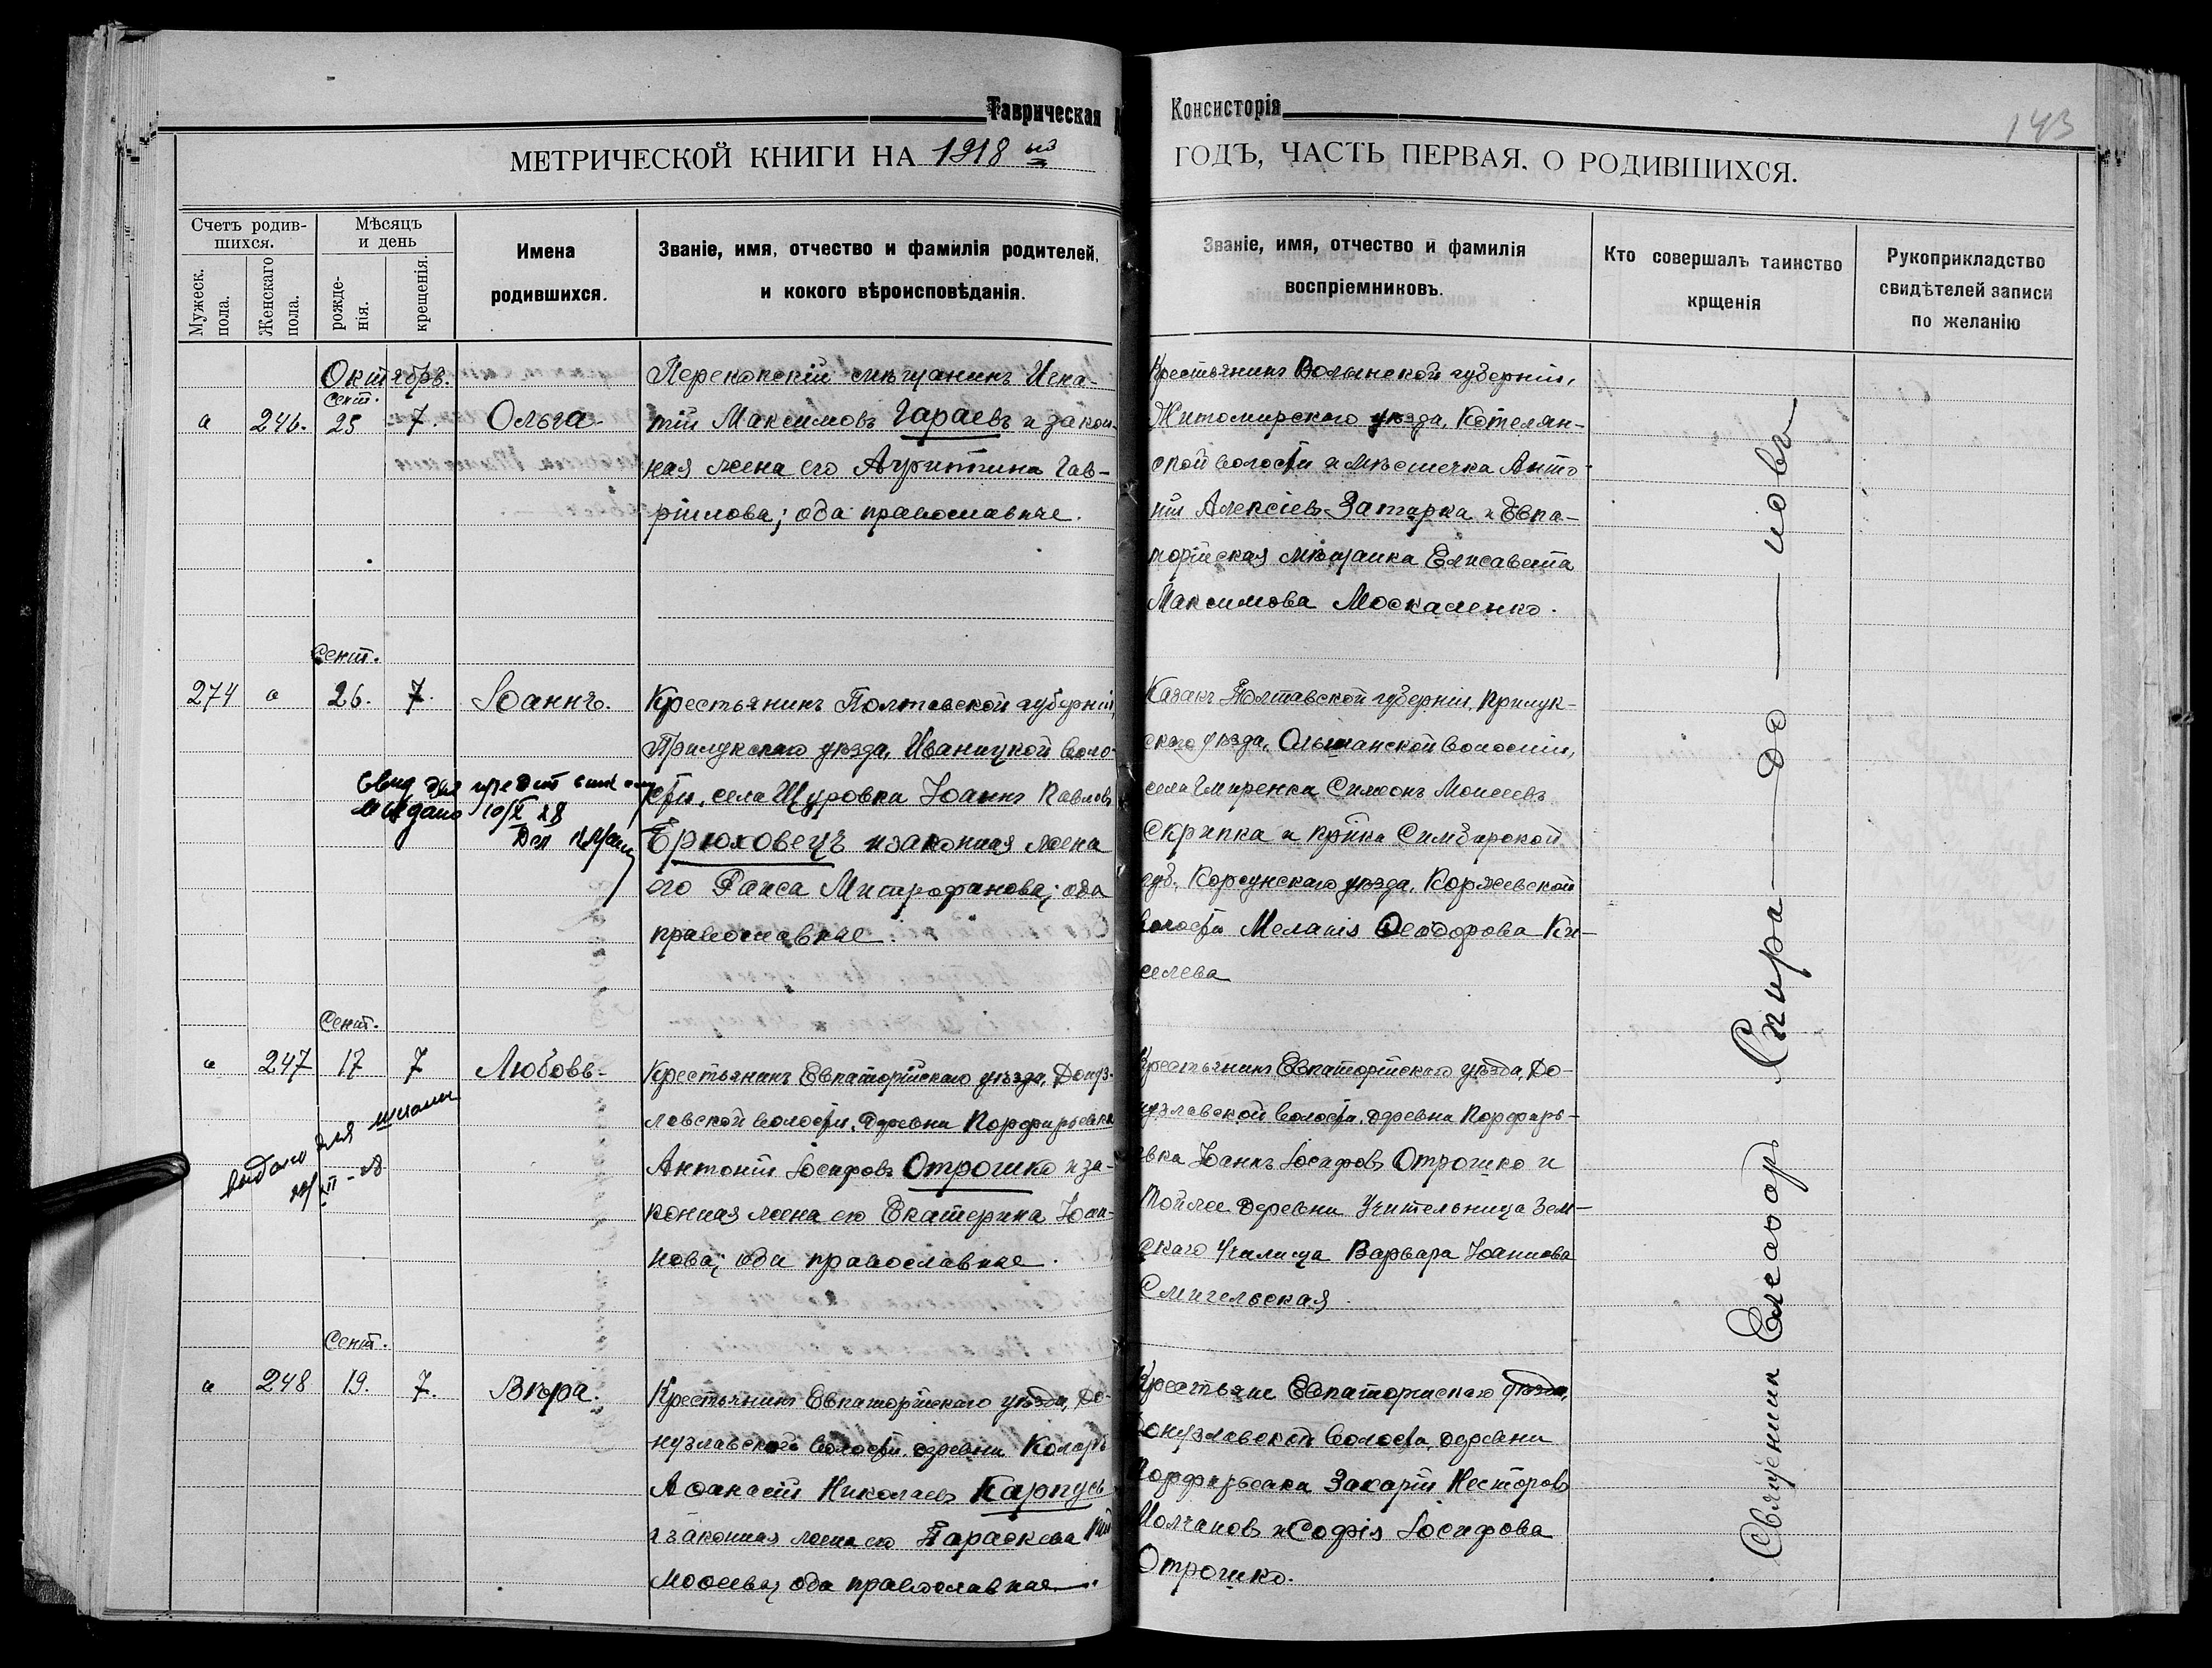 Таврическая
Консисторія
143
МЕТРИЧЕСКОЙ КНИГИ НА 1918 ый
ГОДЪ, ЧАСТЬ ПЕРВАЯ, О РОДИВШИХСЯ.
Счетъ родив-
шихся.
Мужеск.
пола.
Женскаго
пола.
Мѣсяцъ
и день
рожде-
нія.
крещенія.
Имена
родившихся.
Званіе, имя, отчество и фамилія родителей,
и кокого вѣроисповѣданія.
Званіе, имя, отчество и фамилія
воспріемниковъ.
Кто совершалъ таинство
крщенія
Рукоприкладство
свидѣтелей записи
по желанію
Октябрь.
Сент.
а 246. 25 7. Ольга
Перекопскій мѣщанинъ Игна-
тій Максимовъ Гараевъ и закон-
ная жена его Агриппина Гав-
ріилова; оба православные.
Крестьянинъ Волынской губерніи,
Житомирскаго уѣзда, Котелян-
ской волости и мѣстечка Анто-
ній Алексіевъ Затарка и Евпа-
торійская мѣщанка Елисавета
Максимова Москаленко.
Сент.
274 а 26. 7. Іоаннъ.
Крестьянинъ Полтавской губерніи,
Прилукскаго уѣзда, Иваницкой воло-
сти, села Щуровка Іоаннъ Павловъ
Ерюховецъ и законная жена
его Раиса Митрофанова; оба
православные.
выдано 10/X 28
Казакъ Полтавской губерніи, Прилук-
скаго уѣзда, Ольшанской волости,
села Гмиренка Симеонъ Моисеевъ
Скрипка и кр-нка Симбирской
губ. Корсунскаго уѣзда, Коржевской
волости Меланія Ѳеодорова Ки-
селева
Сент.
а 247 17 7 Любовь
Крестьянинъ Евпаторійскаго уѣзда, Донуз-
лавской волости, деревни Порфирьевка
Антоній Іосифовъ Отрошко и за-
конная жена его Екатерина Іоан-
нова; оба православные.
выдано для школы
Крестьянинъ Евпаторійскаго уѣзда, До-
нузлавской волости, деревни Порфирь-
евка Іоаннъ Іосифовъ Отрошко и
тойже деревни Учительница Зем-
скаго Училища Варвара Іоаннова
Смигельская.
Сент.
а 248 19. 7. Вѣра.
Крестьянинъ Евпаторійскаго уѣзда, До-
нузлавской волости, деревни Коларъ
Аѳанасій Николаевъ Карпусь
и законная жена его Параскева Ти-
моѳеева; оба православные.
Крестьяне Евпаторійскаго уѣзда,
Донузлавской волости, деревни
Порфирьевки Захарій Несторовъ
Молчановъ и Софія Іосифова
Отрошко.
Священникъ Спира-до-новъ